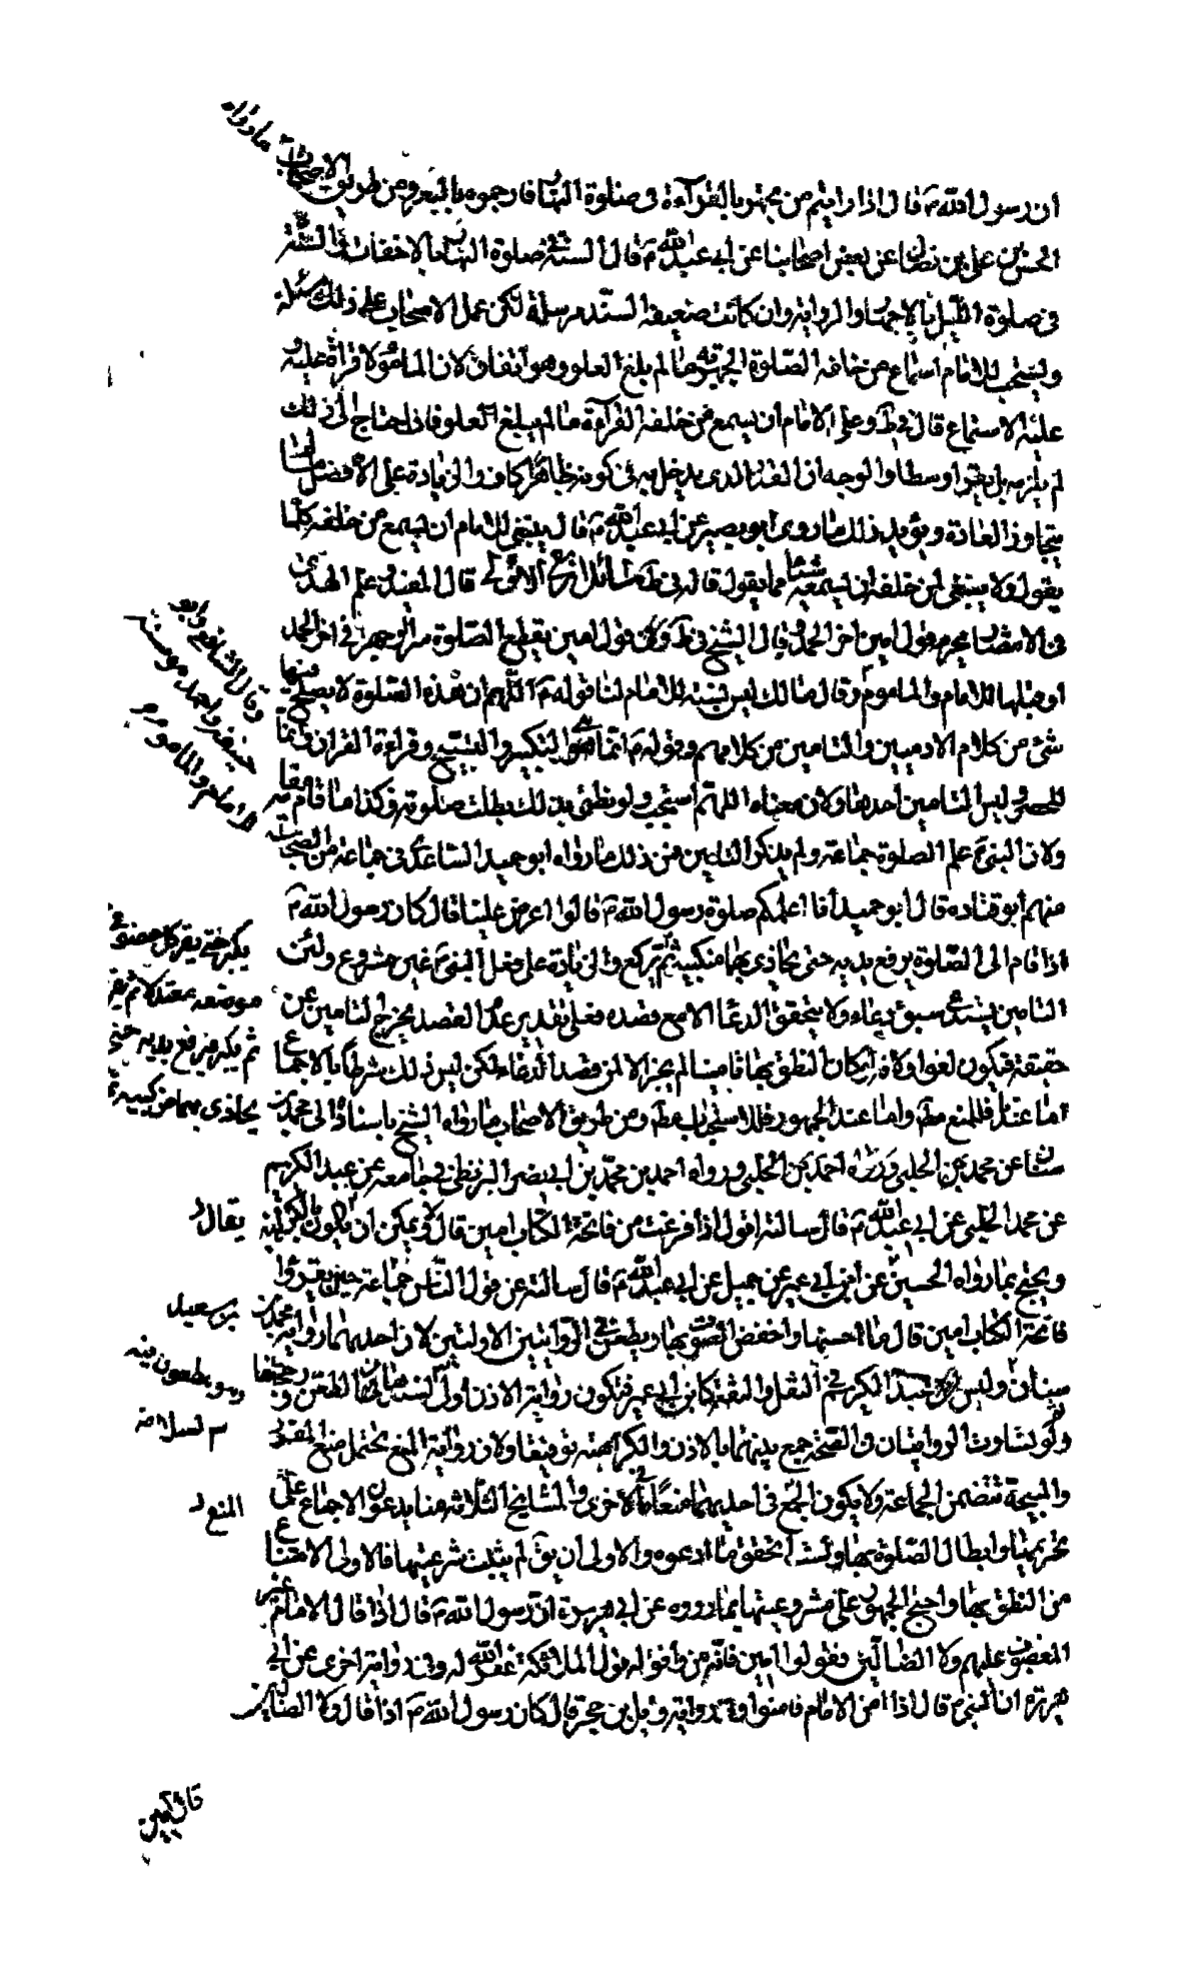 ما رواه
ان رسول الله ص قال اذا رايتم من يجهر بالقرآءة في صلوة النهار فارجموه بالبعر ومن طريق الاصحاب
الحسن بن علي بن فضال عن بعض اصحابنا عن ابي عبد الله ع قال السنة في صلوة النهار بالاخفات والسنة
في صلوة الليل بالاجهار والرواية وان كانت ضعيفة السند مرسلة لكن عمل الاصحاب على ذلك مسئلة
ويستحب للامام اسماع من خلفه الصلوة الجهرية ما لم يبلغ العلو وهو اتفاق لان الماموم لا قراءة عليه و
عليه الاستماع قال في ط وعلى الامام ان يسمع من خلفه القرآءة ما لم يبلغ العلو فاذا احتاج الى ذلك
لم يلزمه بل يقرا وسطا والوجه ان القدر الذي يدخل به في كونه ظاهرا كاف والزيادة على الافضل
يتجاوز العادة ويؤيد ذلك ما روى ابو بصير عن ابي عبد الله ع قال ينبغي للامام ان يسمع من خلفه كلما
يقول ولا ينبغي لمن خلفه ان يسمعه شيئا مما يقول قال المفيد وعلم الهدى
يحرم قول امين اخر الحمد وقال الشيخ في ط و ف قول امين يقطع الصلوة سرا وجهرا في اخر الحمد
او قبلها للامام والماموم وقال مالك ليس بسنة للامام لنا قوله ع اللهم ان هذه الصلوة لا يصلح فيها
شئ من كلام الادميين والتامين من كلامهم وبقوله ع انما هي التكبير والتسبيح وقراءة القران وانما
للحصر وليس التامين احدها ولان معناه اللهم استجب ولو نطق بذلك بطلت صلوته فكذا ما قام مقامه
ولان النبي ع علم الصلوة جماعة ولم يذكر التامين فمن ذلك ما رواه ابو حميد الساعدي في جماعة من الصحابة
منهم ابو قتادة قال ابو حميد انا اعلمكم صلوة رسول الله ص قالوا اعرض علينا قال كان رسول الله ص
اذا قام الى الصلوة يرفع يديه حتى يحاذي بهما منكبيه ثم يركع والزيادة على فعل النبي ع غير مشروع ولئن
التامين يستدعي سبق دعاء ولا يتحقق الدعاء الا مع قصده فعلى تقدير عدم القصد يخرج التامين عن
حقيقته فيكون لغوا ولانه لو كان النطق بها تامينا لم يجز الا لمن قصد الدعاء لكن ليس ذلك شرطا بالاجماع
اما عندنا فللمنع مط واما عند الجمهور فللاستحباب مط ومن طريق الاصحاب ما رواه الشيخ باسناده الى محمد بن
سنان عن محمد الحلبي ورواه احمد بن محمد بن ابي نصر البزنطي في جامعه عن عبد الكريم
عن محمد الحلبي عن ابي عبد الله ع قال سالته اقول اذا فرغت من فاتحة الكتاب امين قال لا ويمكن ان يكون بالكراهية
ويحتج بما رواه الحسين عن ابن ابي عمير عن جميل عن ابي عبد الله ع قال سالته عن قول الناس جماعة حين يقرؤا
فاتحة الكتاب امين قال ما احسنها واخفض الصوت بها ويطعن في الروايتين الاولتين لان احديهما رواية محمد بن
سنان وليس عبد الكريم في النقل والثقة كابن ابي عمير فتكون رواية الاذن اولى
ولو تساوت الروايتان في الصحة جمع بينهما بالاذن والكراهية توفيقا ولان رواية المنع يحتمل منع المنفرد
والمبيحة تتضمن الجماعة ولا يكون المنع في احديهما منعا في الاخرى والمشايخ الثلاثة منا يدعون الاجماع على
تحريمها وابطال الصلوة بها ولست اتحقق ما ادعوه والاولى ان يق لم يثبت شرعيتها فالاولى الامتناع
من النطق بها واحتج الجمهور على مشروعيتها بما رووه عن ابي هريرة ان رسول الله ص قال اذا قال الامام غير
المغضوب عليهم ولا الضالين فقولوا امين فانه من وافق قوله قول الملائكة غفر الله له وفي رواية اخرى عن ابي
هريرة ان النبي ص قال اذا امن الامام فامنوا وفي رواية وايل بن حجر قال كان رسول الله ص اذا قال ولا الضالين
وقال الشافعي واحمد هو سنة
للامام والماموم
يكبر حتى يقر كل عضو في
موضعه معتدلا ثم يقرا
ثم يكبر فيرفع يديه حتى
يحاذي بهما منكبيه
يقال
بن سعيد
وهو مطعون فيه
المنع
قال امين